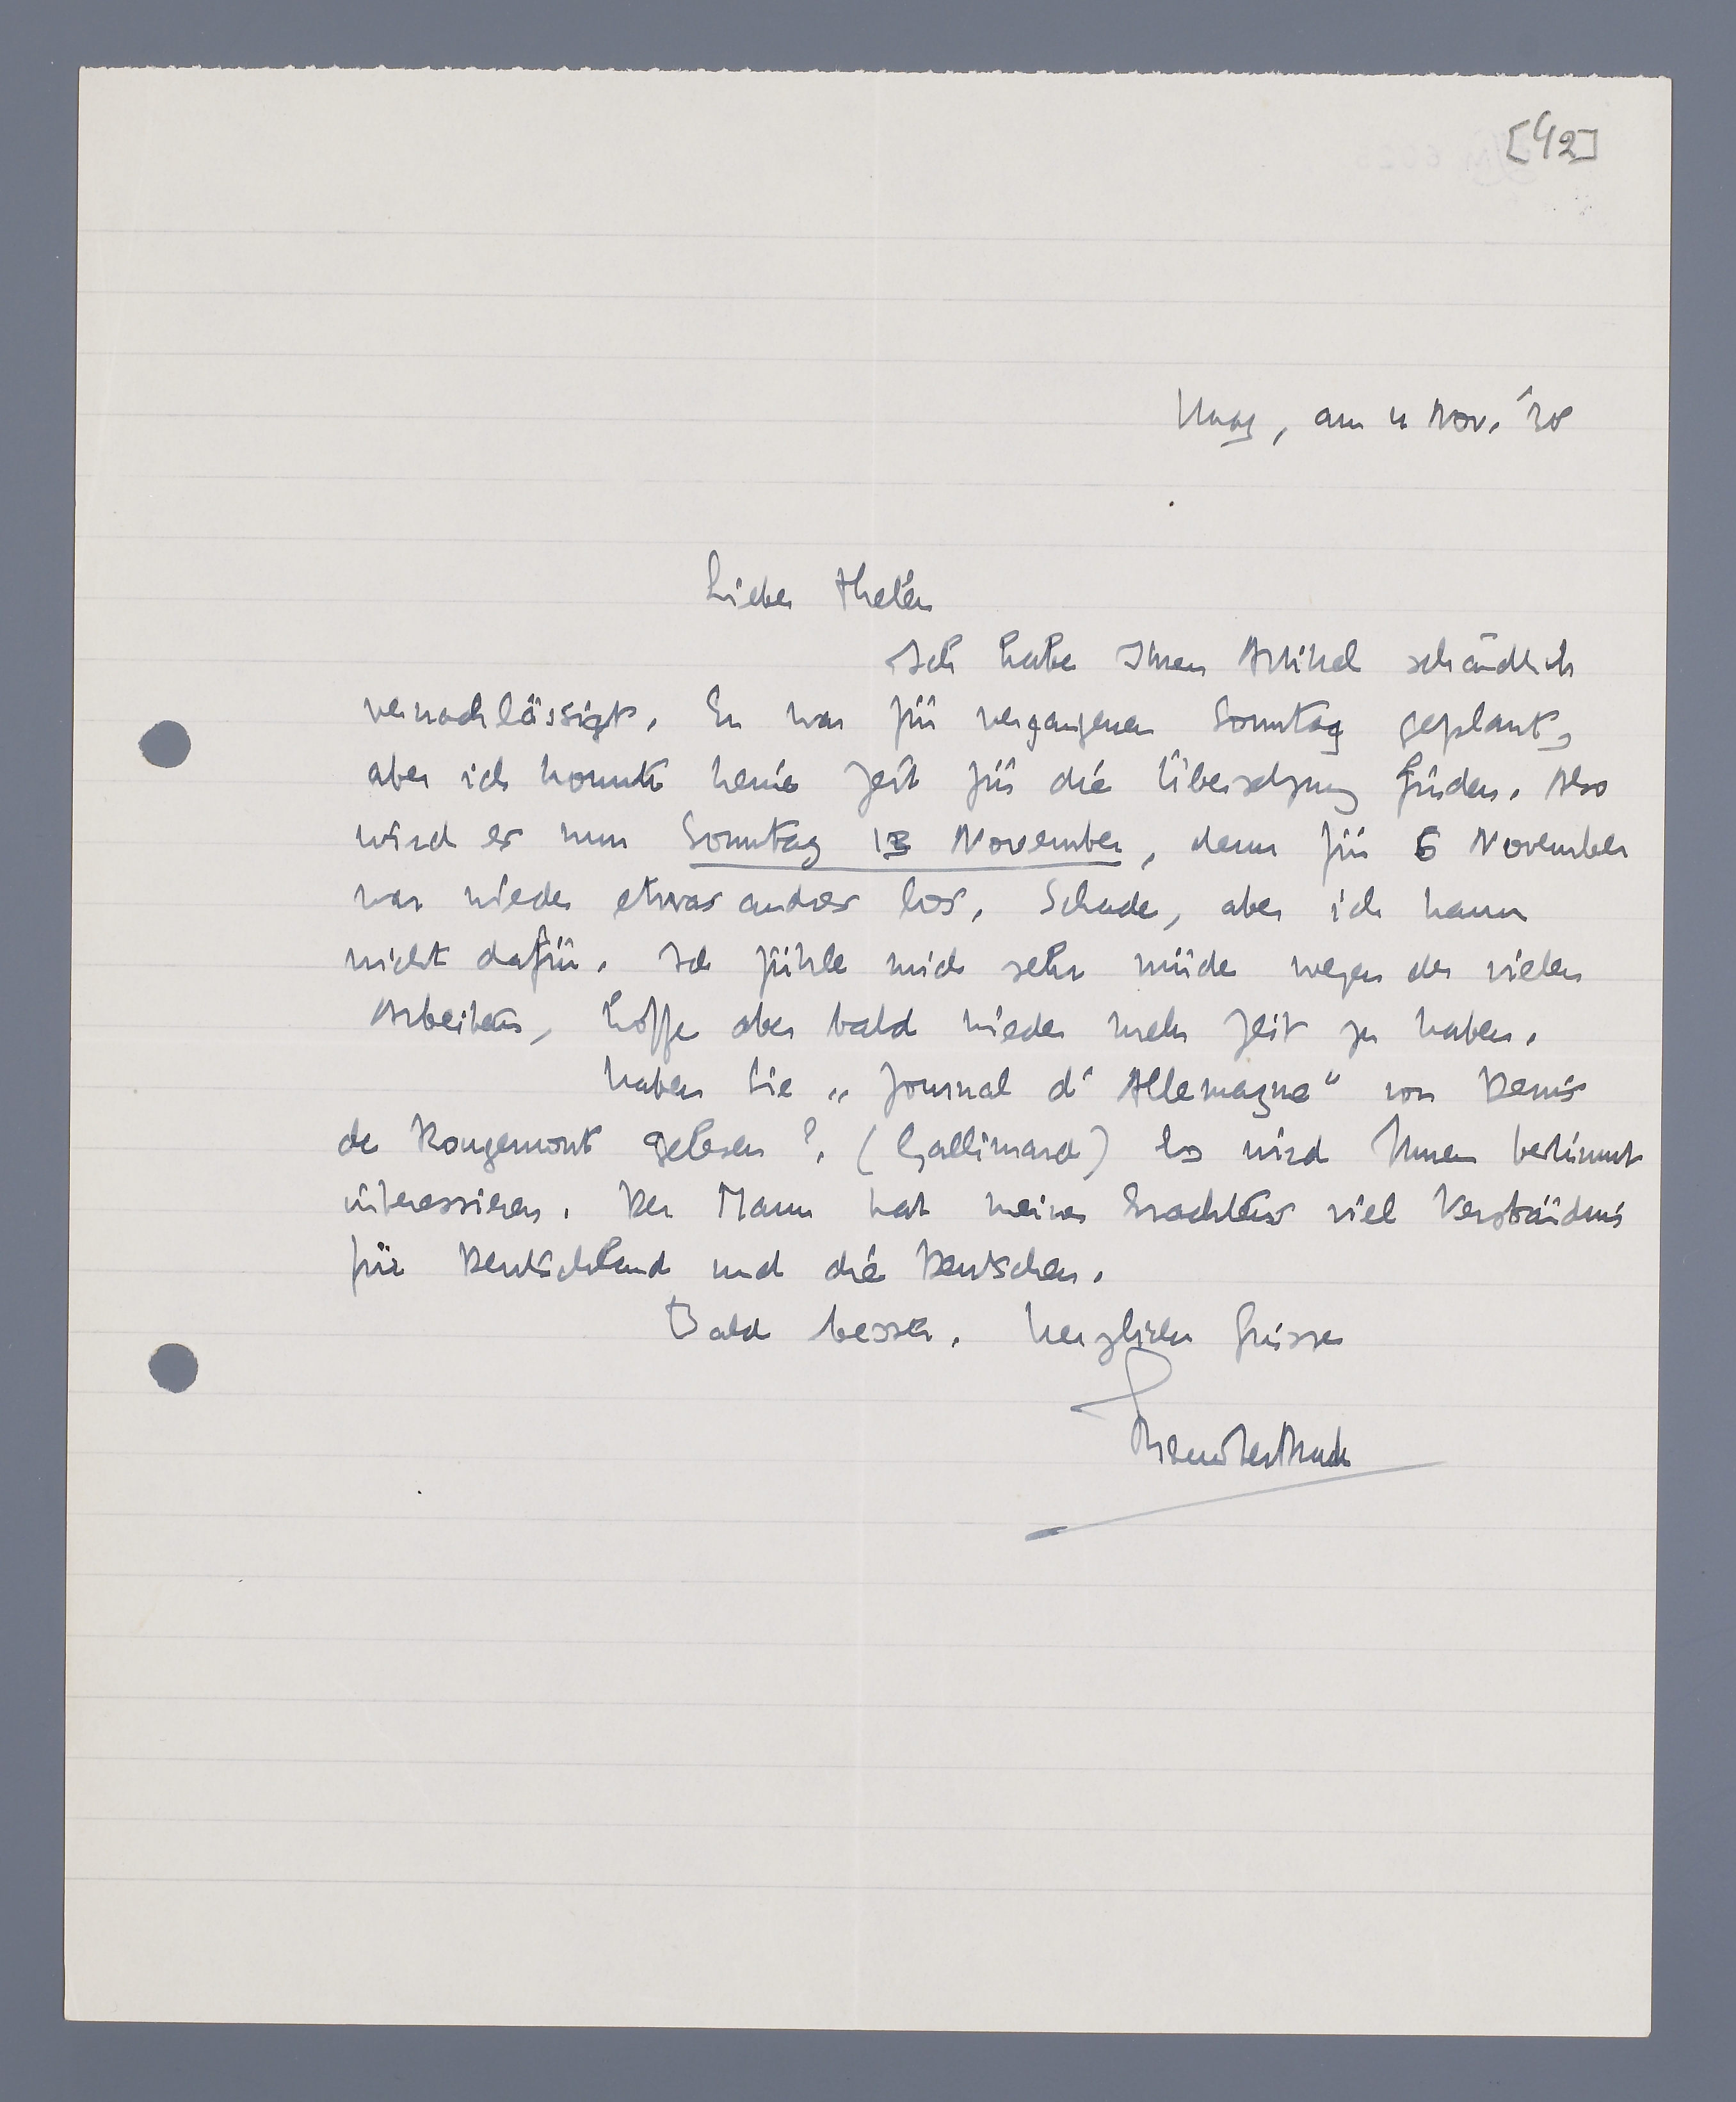 [42]
Haag, am 4 Nov. '38
Lieber Thelen
Ich habe Ihren Artikel schändlich
vernachlässigt. Er war für vergangenen Sonntag geplant,
aber ich konnte keine Zeit für die Übersetzung finden. Also
wird es nun Sonntag 13 November, denn für 6 November
war wieder etwas andres los. Schade, aber ich kann
nicht dafür. Ich fühle mich sehr müde wegen der vielen
Arbeiten, hoffe aber bald wieder mehr Zeit zu haben.
Haben Sie „Journal d'Allemagne" von Denis
de Rougemont gelesen? (Gallimard) Es wird Ihnen bestimmt
interessieren. Der Mann hat meines Erachtens viel Verständnis
für Deutschland und die Deutschen.
Bald besser. Herzlichen Grüsse